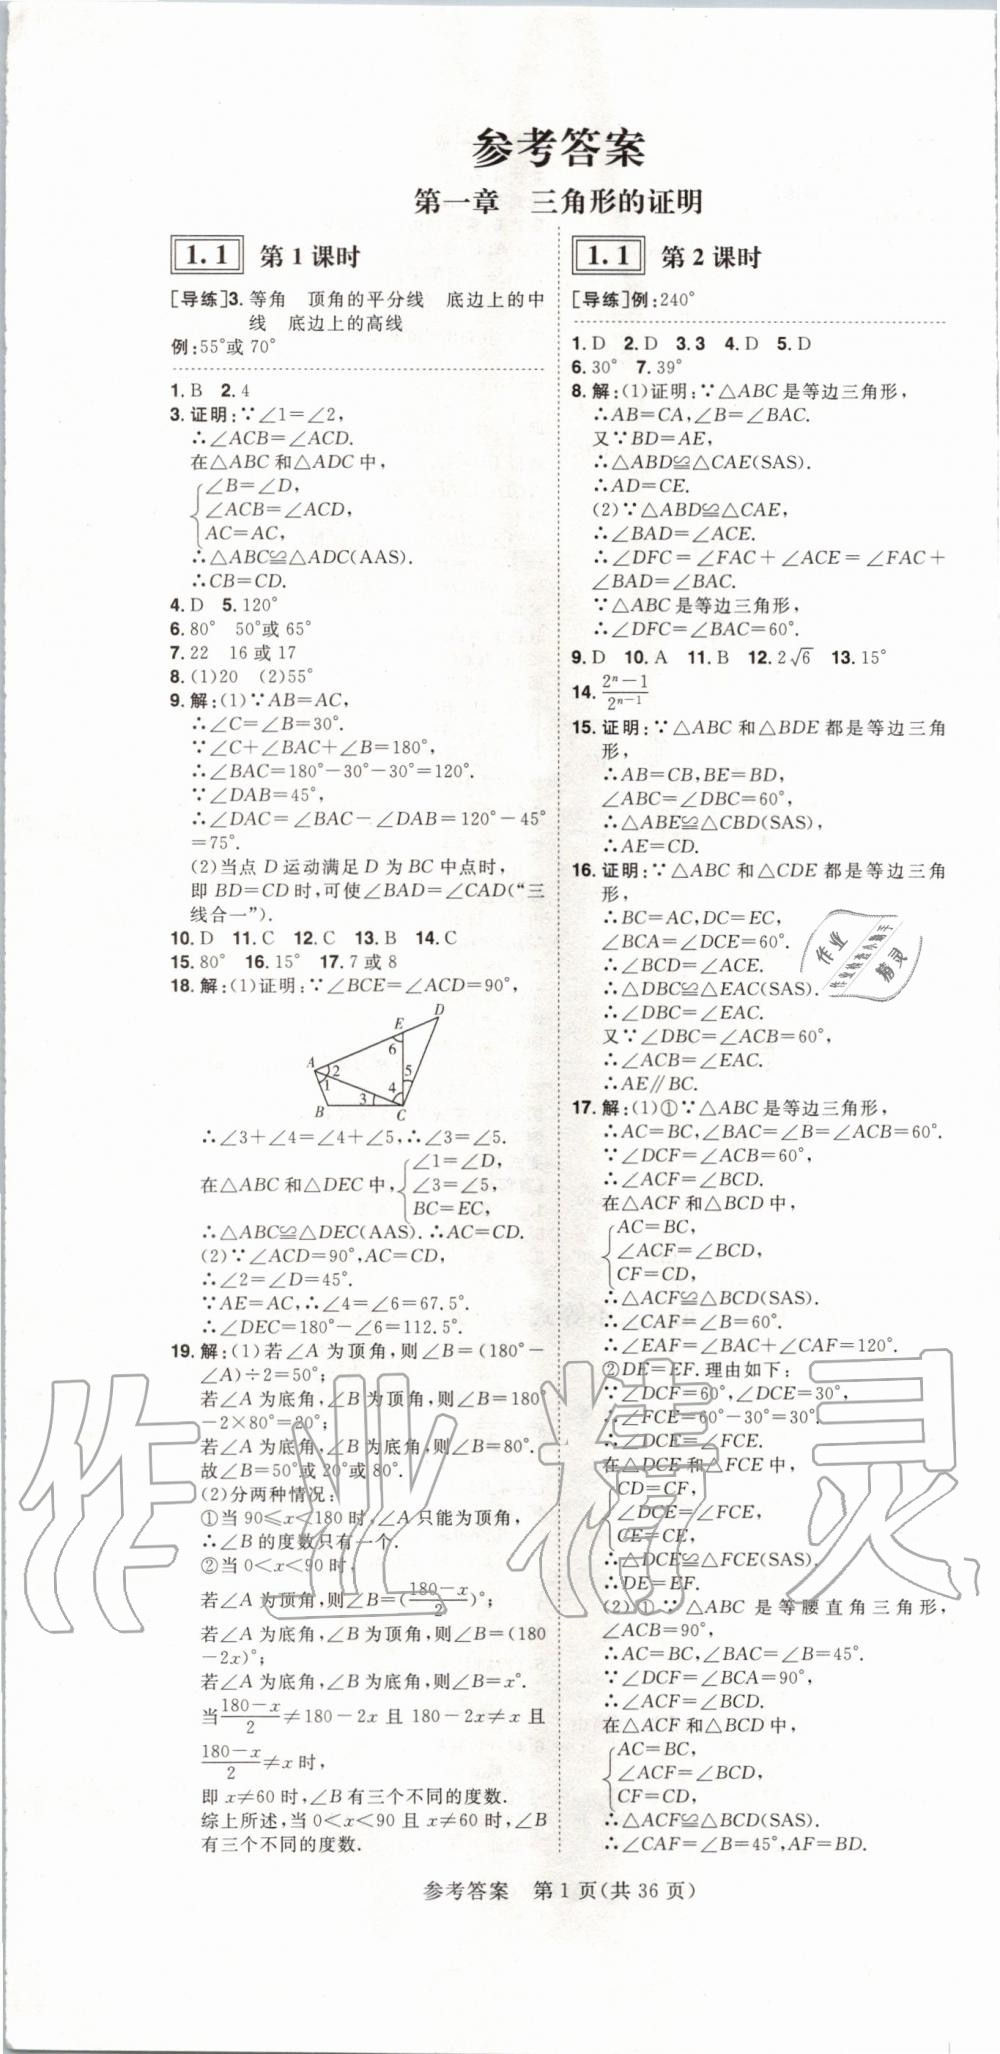 参考答案
第一章　三角形的证明
1.1　第1课时
[导练]3.等角　顶角的平分线　底边上的中
线　底边上的高线
例:55°或70°
1.B　2.4
3.证明:∵∠1=∠2,
∴∠ACB=∠ACD.
在△ABC和△ADC中,
∠B=∠D,
∠ACB=∠ACD,
AC=AC,
∴△ABC≌△ADC(AAS).
∴CB=CD.
4.D　5.120°
6.80°　50°或65°
7.22　16或17
8.(1)20　(2)55°
9.解:(1)∵AB=AC,
∴∠C=∠B=30°.
∵∠C+∠BAC+∠B=180°,
∴∠BAC=180°-30°-30°=120°.
∵∠DAB=45°,
∴∠DAC=∠BAC-∠DAB=120°-45°
=75°.
(2)当点D运动满足D为BC中点时,
即BD=CD时,可使∠BAD=∠CAD(“三
线合一”).
10.D　11.C　12.C　13.B　14.C
15.80°　16.15°　17.7或8
18.解:(1)证明:∵∠BCE=∠ACD=90°,
D
E
6
A
2
1
5
4
3
B
C
∴∠3+∠4=∠4+∠5,∴∠3=∠5.
在△ABC和△DEC中,
∠1=∠D,
∠3=∠5,
BC=EC,
∴△ABC≌△DEC(AAS).∴AC=CD.
(2)∵∠ACD=90°,AC=CD,
∴∠2=∠D=45°.
∵AE=AC,∴∠4=∠6=67.5°.
∴∠DEC=180°-∠6=112.5°.
19.解:(1)若∠A为顶角,则∠B=(180°-
∠A)÷2=50°;
若∠A为底角,∠B为顶角,则∠B=180°
-2×80°=20°;
若∠A为底角,∠B为底角,则∠B=80°.
故∠B=50°或20°或80°.
(2)分两种情况:
①当90≤x<180时,∠A只能为顶角,
∴∠B的度数只有一个.
②当0<x<90时,
若∠A为顶角,则∠B=(180-x/2)°;
若∠A为底角,∠B为顶角,则∠B=(180
-2x)°;
若∠A为底角,∠B为底角,则∠B=x°.
当180-x/2≠180-2x且180-2x≠x且
180-x/2≠x时,
即x≠60时,∠B有三个不同的度数.
综上所述,当0<x<90且x≠60时,∠B
有三个不同的度数.
1.1　第2课时
[导练]例:240°
1.D　2.D　3.3　4.D　5.D
6.30°　7.39°
8.解:(1)证明:∵△ABC是等边三角形,
∴AB=CA,∠B=∠BAC.
又∵BD=AE,
∴△ABD≌△CAE(SAS).
∴AD=CE.
(2)∵△ABD≌△CAE,
∴∠BAD=∠ACE.
∴∠DFC=∠FAC+∠ACE=∠FAC+
∠BAD=∠BAC.
∵△ABC是等边三角形,
∴∠DFC=∠BAC=60°.
9.D　10.A　11.B　12.2√6　13.15°
14.2ⁿ-1/2ⁿ⁻¹
15.证明:∵△ABC和△BDE都是等边三角
形,
∴AB=CB,BE=BD,
∠ABC=∠DBC=60°,
∴△ABE≌△CBD(SAS),
∴AE=CD.
16.证明:∵△ABC和△CDE都是等边三角
形,
∴BC=AC,DC=EC,
∠BCA=∠DCE=60°.
∴∠BCD=∠ACE.
∴△DBC≌△EAC(SAS).
∴∠DBC=∠EAC.
又∵∠DBC=∠ACB=60°,
∴∠ACB=∠EAC.
∴AE∥BC.
17.解:(1)①∵△ABC是等边三角形,
∴AC=BC,∠BAC=∠B=∠ACB=60°.
∵∠DCF=∠ACB=60°,
∴∠ACF=∠BCD.
在△ACF和△BCD中,
AC=BC,
∠ACF=∠BCD,
CF=CD,
∴△ACF≌△BCD(SAS).
∴∠CAF=∠B=60°.
∴∠EAF=∠BAC+∠CAF=120°.
②DE=EF.理由如下:
∵∠DCF=60°,∠DCE=30°,
∴∠FCE=60°-30°=30°.
∴∠DCE=∠FCE.
在△DCE和△FCE中,
CD=CF,
∠DCE=∠FCE,
CE=CE,
∴△DCE≌△FCE(SAS).
∴DE=EF.
(2)①∵△ABC是等腰直角三角形,
∠ACB=90°,
∴AC=BC,∠BAC=∠B=45°.
∵∠DCF=∠BCA=90°,
∴∠ACF=∠BCD.
在△ACF和△BCD中,
AC=BC,
∠ACF=∠BCD,
CF=CD,
∴△ACF≌△BCD(SAS).
∴∠CAF=∠B=45°,AF=BD.
作业
作业检查小助手
精灵
作业精灵
参考答案　第1页(共36页)